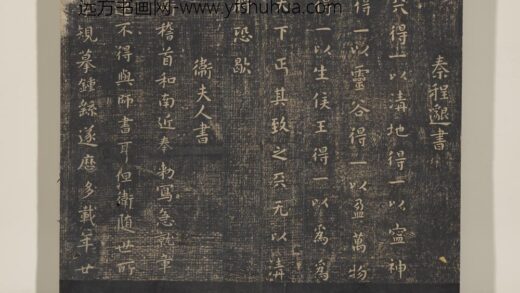 远方书画网-www.yfshuhua.com
秦程邈書
天得一以清地得一以寧神
得一以靈谷得一以盈萬物
一以生侯王得一以為
下正其致之天无以清
恐歇
衞夫人書
稽首和南近奉勑寫急就章
不得與師書耳但衞隨世所
規摹鍾繇遂歷多載年廿